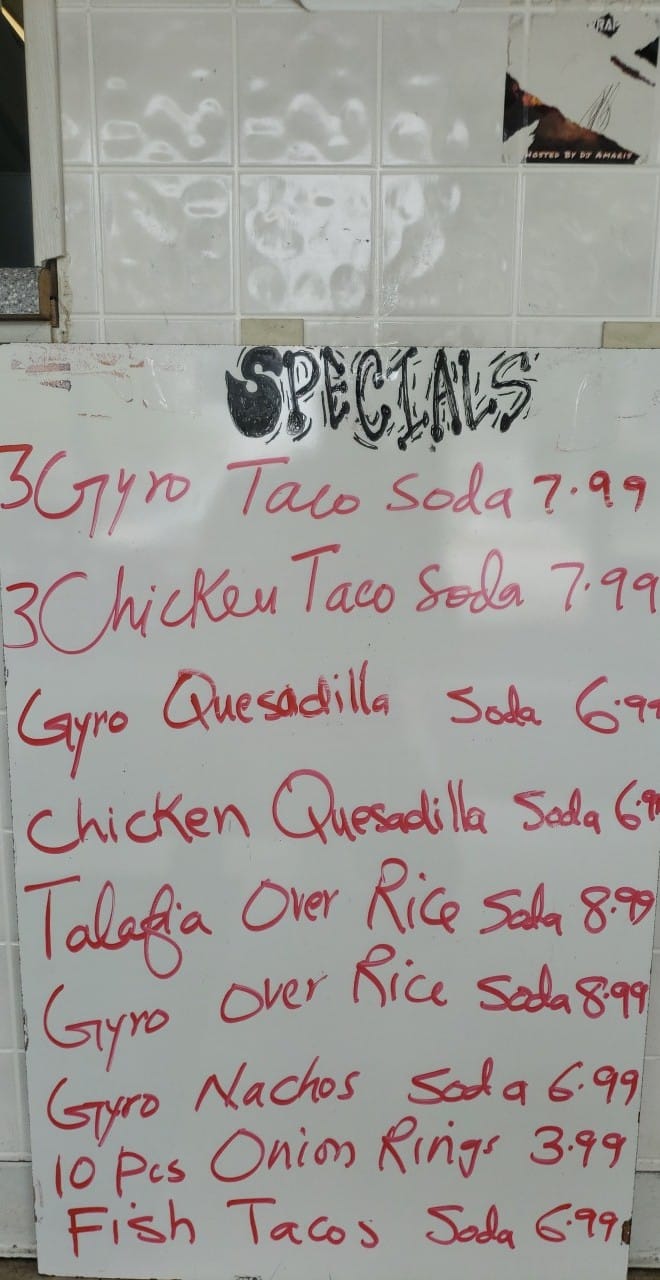 RAP
HOSTED BY DJ AMARIS
SPECIALS
3 Gyro Taco Soda 7.99
3 Chicken Taco Soda 7.99
Gyro Quesadilla Soda 6.99
Chicken Quesadilla Soda 6.99
Talafia Over Rice Soda 8.99
Gyro Over Rice Soda 8.99
Gyro Nachos Soda 6.99
10 Pcs Onion Rings 3.99
Fish Tacos Soda 6.99